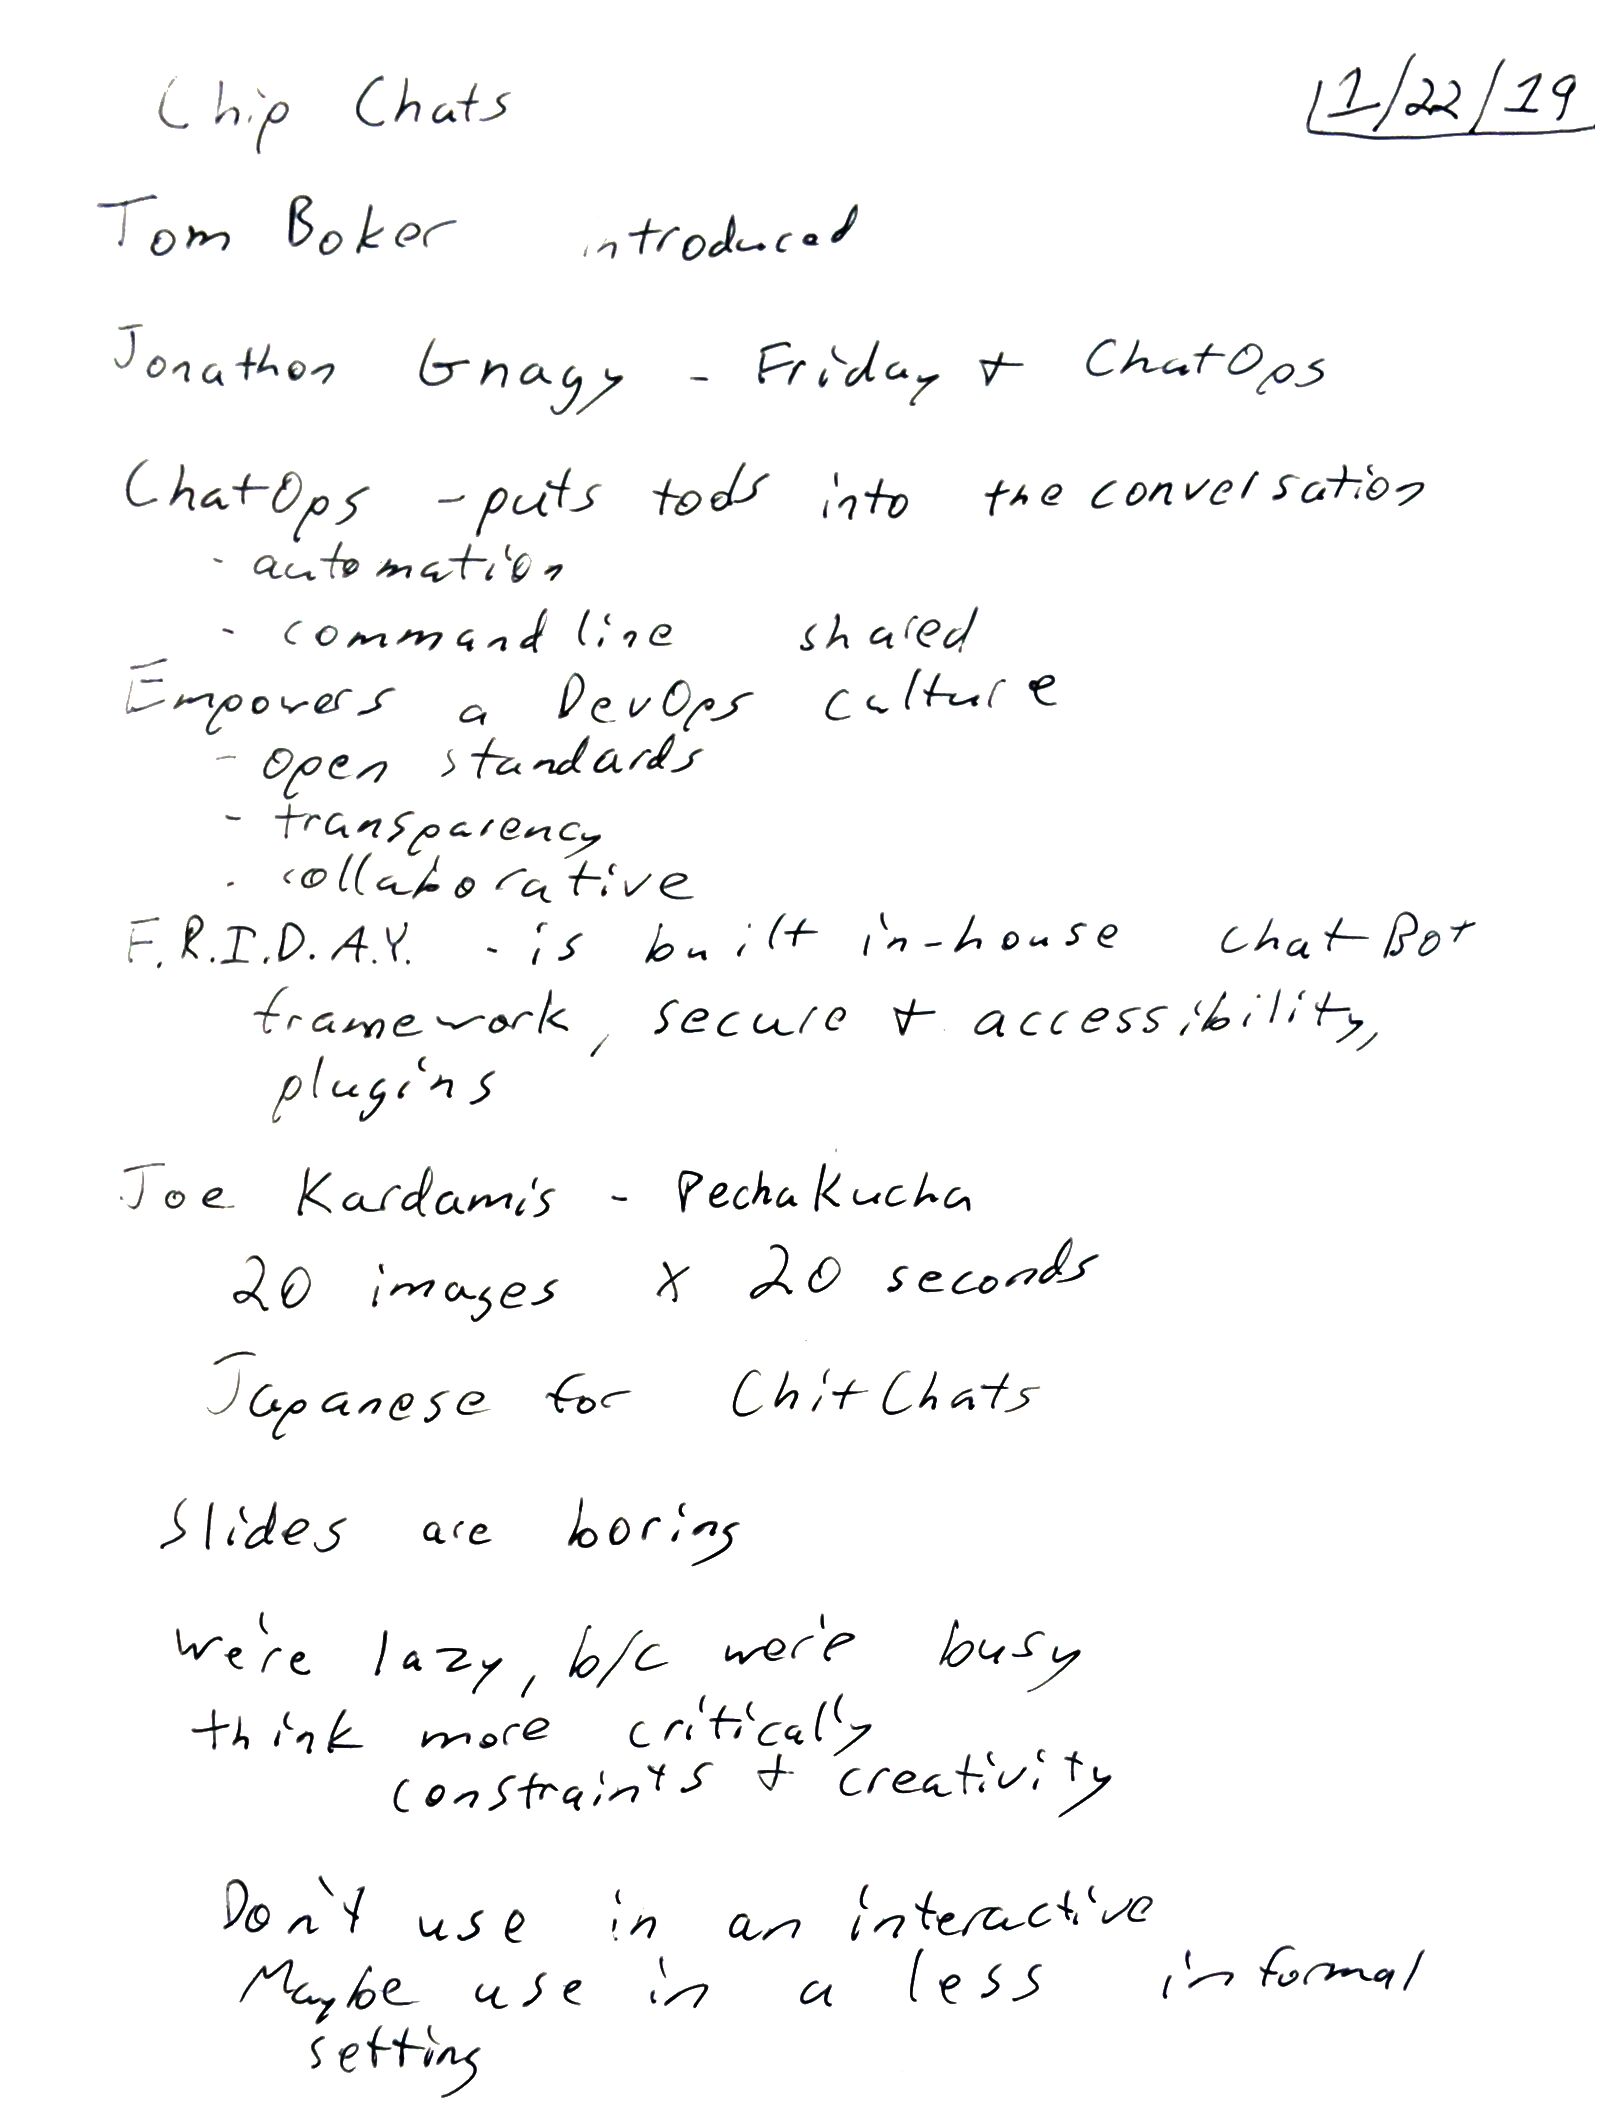 Chip Chats 1/22/19
Tom Boker introduced
Jonathon Gnagy - Friday + ChatOps
ChatOps - puts tools into the conversation
- automation
- command line shared
Empowers a DevOps culture
- open standards
- transparency
- collaborative
F.R.I.D.A.Y. - is built in-house chatBot
framework, secure + accessibility,
plugins
Joe Kardamis - PechaKucha
20 images x 20 seconds
Japanese for ChitChats
Slides are boring
We're lazy, b/c we're busy
think more critically
constraints + creativity
Don't use in an interactive
Maybe use in a less informal
setting